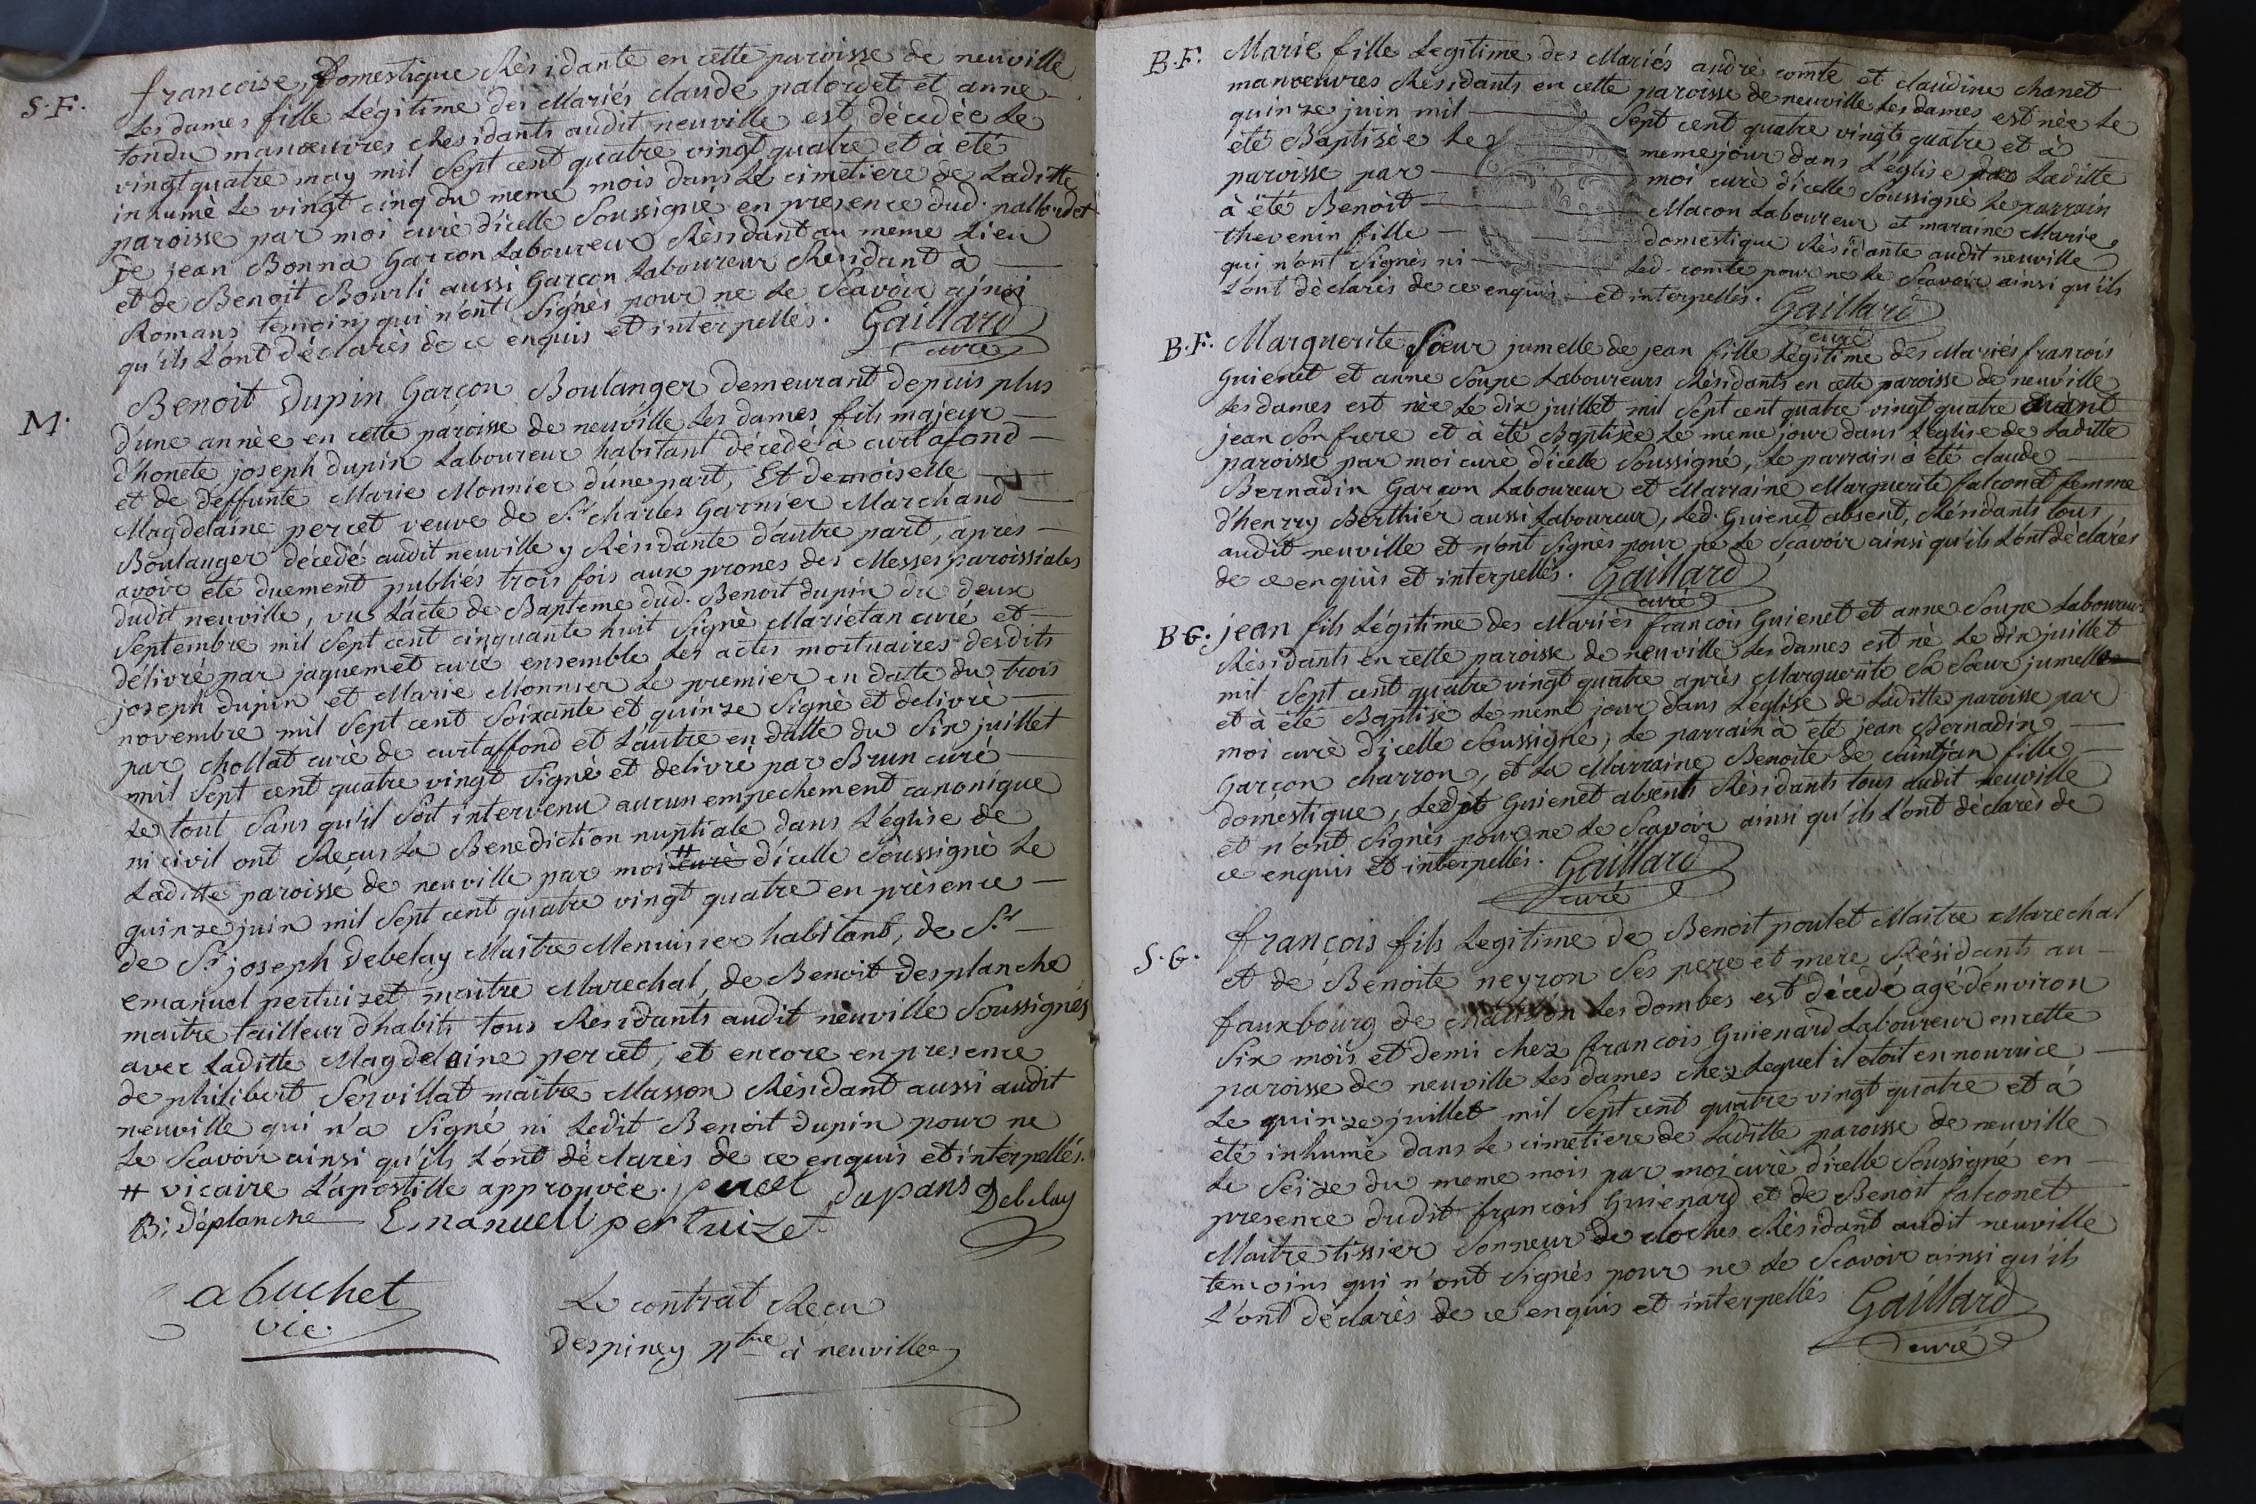 S.F. francoise, Domestique Résidante en cette paroisse de neuville
Les dames fille Légitime des Mariés claude palordet et anne
tondu manœuvres Résidants audit neuville est décedée Le
vingt quatre may mil Sept cent quatre vingt quatre et à été
inhumé Le vingt cinq du meme mois dans Le cimetiere de Laditte
paroisse par moi curé d'icelle Soussigné en presence dud. pallordet
De jean Bonna Garcon Laboureur Résidant au meme Lieu
et de Benoit Bourli aussi Garcon Laboureur Résidant à
Romans temoins qui n'ont Signés pour ne Le Scavoir ainsi
qu'ils L'ont déclarés de ce enquis et interpellés. Gaillard
curé
M. Benoit Dupin Garçon Boulanger demeurant depuis plus
d'une année en cette paroisse de neuville Les dames fils majeur
d'honete joseph dupin Laboureur habitant décedé à curtafond
et de deffunte Marie Monnier d'une part, Et demoiselle
Magdelaine percet veuve de Sr. charles Garnier Marchand
Boulanger décedé audit neuville y Résidante d'autre part, après
avoir été duement publiés trois fois aux prones des Messes paroissiales
dudit neuville, vus L'acte de Bapteme dud. Benoit dupin du deux
Septembre mil Sept cent cinquante huit Signé Mariétan curé et
délivré par jaquemet curé ensemble Les actes mortuaires desdits
joseph dupin et Marie Monnier Le premier en datte du trois
novembre mil Sept cent Soixante et quinze Signé et delivré
par chollat curé de curtaffond et L'autre en datte du Six juillet
mil Sept cent quatre vingt Signé et delivré par Brun curé
Le tout Sans qu'il Soit intervenu aucun empechement canonique
ni civil ont Recus La Benediction nuptiale dans L'église de
Laditte paroisse de neuville par moi # curé d'icelle Soussigné Le
quinze juin mil Sept cent quatre vingt quatre en présence
de Sr. joseph Debelay Maitre Menuisier habitant, de Sr.
emanuel pertuizet maitre Marechal, de Benoit Desplanche
maitre tailleur d'habits tous Résidants audit neuville Soussignés
avec Laditte Magdelaine percet, et encore en presence
de philibert Servillat maitre Masson Résidant aussi audit
neuville qui n'a Signé ni Ledit Benoit dupin pour ne
Le Scavoir ainsi qu'ils L'ont déclarés de ce enquis et interpellés.
# vicaire L'apostille approuvée. percet dupans Debelay
B: déplanche Emanuell pertuizet
abuchet
vic.
Le contrat Recu
Despiney Ntre à neuville
B.F. Marie fille Legitime des Mariés andré comte et claudine chanet
manœuvres Résidants en cette paroisse de neuville Les dames est née Le
quinze juin mil Sept cent quatre vingt quatre et à
été Baptisée Le meme jour dans L'église de Laditte
paroisse par moi curé d'icelle Soussigné Le parrain
à été Benoit Macon Laboureur et maraine Marie
thevenin fille domestique Résidante audit neuville
qui n'ont Signés ni Led. comte pour ne Le Scavoir ainsi qu'ils
L'ont déclarés de ce enquis et interpellés. Gaillard
curé
B.F. Marguerite Sœur jumelle de jean fille Légitime des Mariés francois
Guienet et anne Soupe Laboureurs Résidants en cette paroisse de neuville
Les dames est née Le dix juillet mil Sept cent quatre vingt quatre avant
jean Son frere et à été Baptisée Le meme jour dans L'église de Laditte
paroisse par moi curé d'icelle Soussigné, Le parrain a été claude
Bernadin Garcon Laboureur et Marraine Marguerite falconet femme
d'henry Berthier aussi Laboureur, Led. Guienet absent, Résidants tous
audit neuville et n'ont Signés pour ne Le Scavoir ainsi qu'ils L'ont déclarés
de ce enquis et interpellés. Gaillard
curé
B G. jean fils Légitime des Mariés francois Guienet et anne Soupe Laboureurs
Résidants en cette paroisse de neuville Les dames est né Le dix juillet
mil Sept cent quatre vingt quatre aprés Marguerite Sa Sœur jumelle
et à été Baptisé Le même jour dans L'église de Laditte paroisse par
moi curé d'icelle Soussigné, Le parrain à été jean Bernadin
Garçon charron, et La Marraine Benoite de saintjean fille
doméstique, Ledit Guienet absent Résidants tous audit neuville
et n'ont Signés pour ne Le Scavoir ainsi qu'ils L'ont déclarés de
ce enquis et interpellés. Gaillard
curé
S.G. françois fils Legitime de Benoit poulet Maitre Marechal
et de Benoite neyron Ses pere et mere Résidants au
fauxbourg de Les dombes est décedé agé d'environ
Six mois et demi chez francois Guienard Laboureur en cette
paroisse de neuville Les dames chez Lequel il etoit en nourrice
Le quinze juillet mil Sept cent quatre vingt quatre et à
été inhumé dans Le cimetiere de Laditte paroisse de neuville
Le Seize du meme mois par moi curé d'icelle Soussigné en
presence dudit francois Guienard et de Benoit falconet
Maitre tissier Sonneur de cloches Résidant audit neuville
temoins qui n'ont Signés pour ne Le Scavoir ainsi qu'ils
L'ont déclarés de ce enquis et interpellés Gaillard
curé